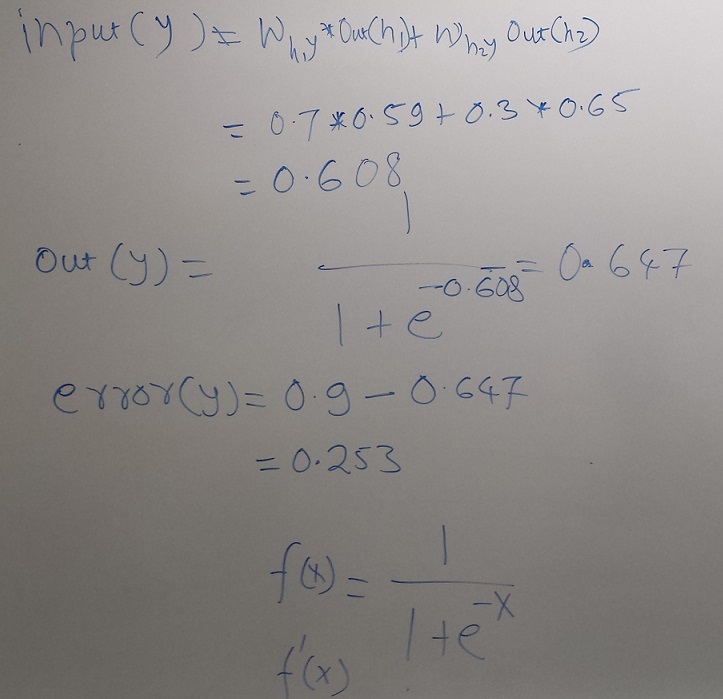 input(y) = W_{h₁y}*Out(h₁)+ W_{h₂y} Out(h₂)
= 0.7*0.59+0.3*0.65
= 0.608
Out(y) = 1 / (1+e^{-0.608}) = 0.647
error(y)= 0.9-0.647
= 0.253
f(x) = 1 / (1+e^{-x})
f'(x)